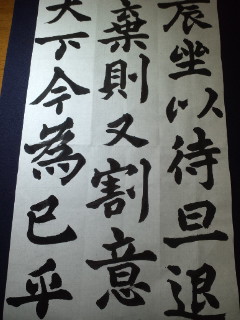 辰坐以待旦退
棄則又割意
天下今為已乎